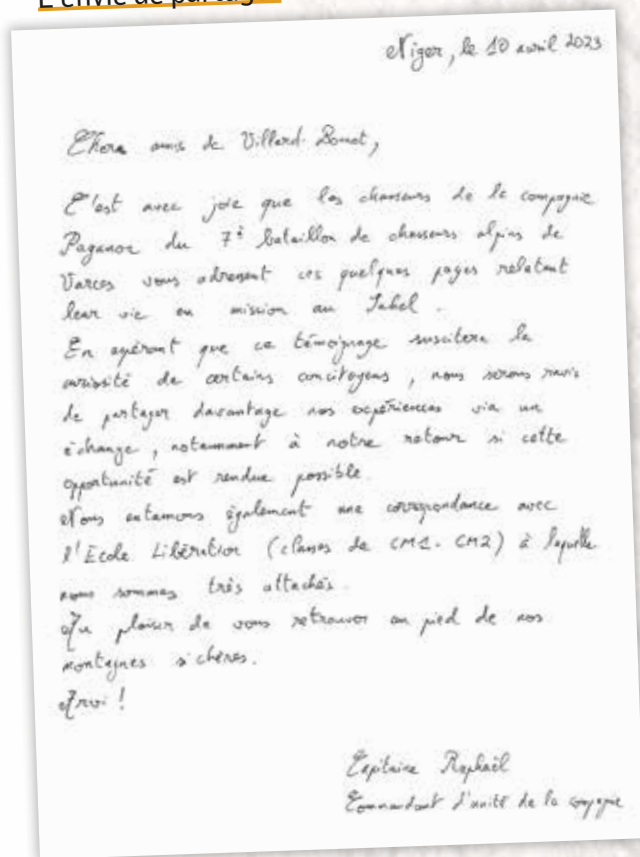 L'envie de partag
Niger, le 10 avril 2023
Chers amis de Villard-Bonnot,
C'est avec joie que les chasseurs de la compagnie
Paganon du 7è bataillon de chasseurs alpins de
Varces vous adressent ces quelques pages relatant
leur vie en mission au Sahel.
En espérant que ce témoignage suscitera la
curiosité de certains concitoyens, nous serons ravis
de partager davantage nos expériences via un
échange, notamment à notre retour si cette
opportunité est rendue possible.
Nous entamons également une correspondance avec
l'Ecole Libération (classes de CM1-CM2) à laquelle
nous sommes très attachés.
Au plaisir de vous retrouver au pied de nos
montagnes si chères.
Arvi !
Capitaine Raphaël
Commandant d'unité de la compagnie